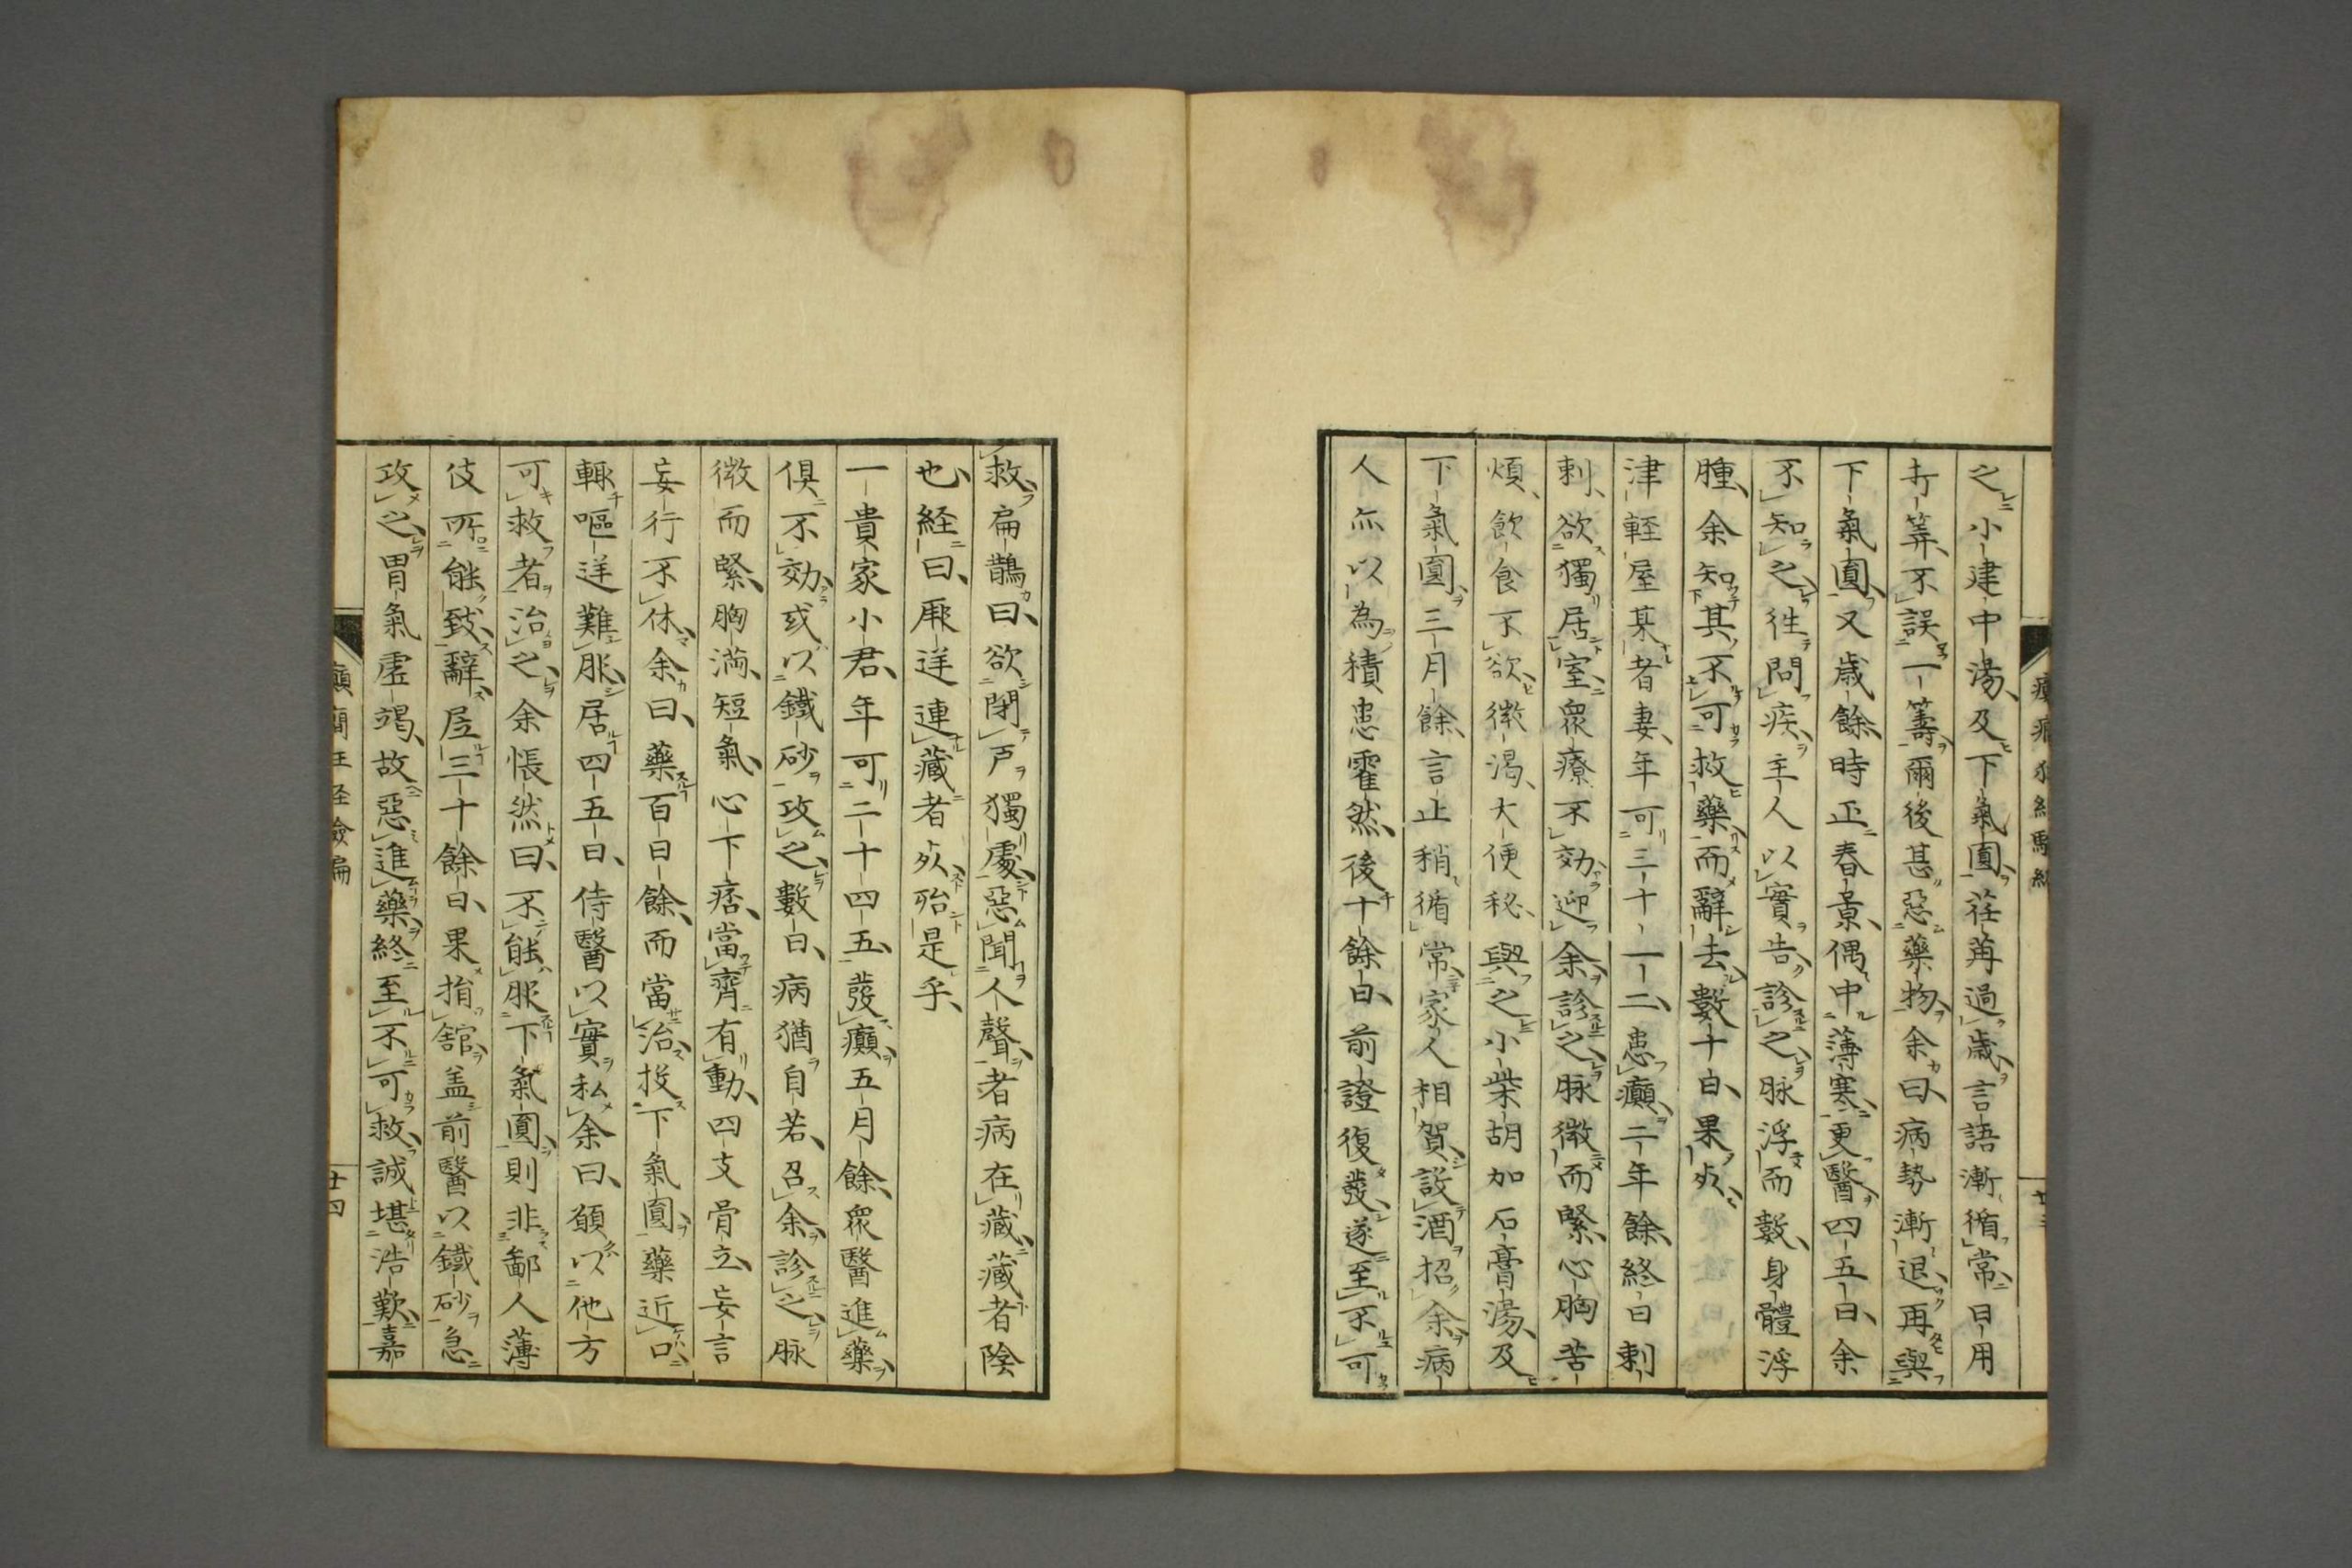 之小建中湯、及下氣圓、荏苒過歲、言語漸循常、日用
弆筭、不誤一籌、爾後甚惡藥物、余曰、病勢漸退、再與
下氣圓、又歲餘、時正春景、偶中薄寒、更醫四五日、余
不知之、徃問疾、主人以實告、診之、脉浮而數、身體浮
腫、余知其不可救藥、而辭去、數十日、果死、
津輕屋某者妻、年可三十一二、患癲二年餘、終日剌
剌、欲獨居室、衆療不効、迎余診之、脉微而緊、心胸苦
煩、飲食不欲、微渴、大便秘、與之小柴胡加石膏湯、及
下氣圓、三月餘、言止稍循常、家人相賀、設酒招余、病
人亦以為積患霍然、後十餘日、前證復發、遂至不可
救、扁鵲曰、欲閉戸獨處、惡聞人聲者、病在藏、藏者陰
也、経曰、厥逆連藏者死、殆是乎、
一貴家小君、年可二十四五、發癲五月餘、衆醫進藥、
俱不効、或以鐵砂攻之、數日、病猶自若、召余診之、脉
微而緊、胸滿、短氣、心下痞、當齊有動、四支骨立、妄言
妄行不休、余曰、藥百日餘、而當治、投下氣圓、藥近口、
輙嘔逆難服、居四五日、侍醫以實私余曰、願以他方
可救者治之、余悵然曰、不能服下氣圓、則非鄙人薄
伎所能致、辭、居三十餘日、果捐舘、盖前醫以鐵砂急
攻之、胃氣虛竭、故惡進藥、終至不可救、誠堪浩歎、嘉
癲癇狂経驗扁
廿四